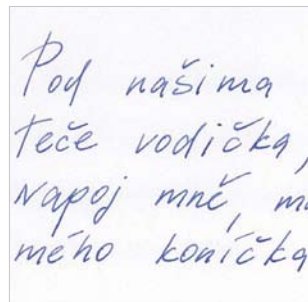 Pod našima
teče vodička,
napoj mně,
mého koníčka